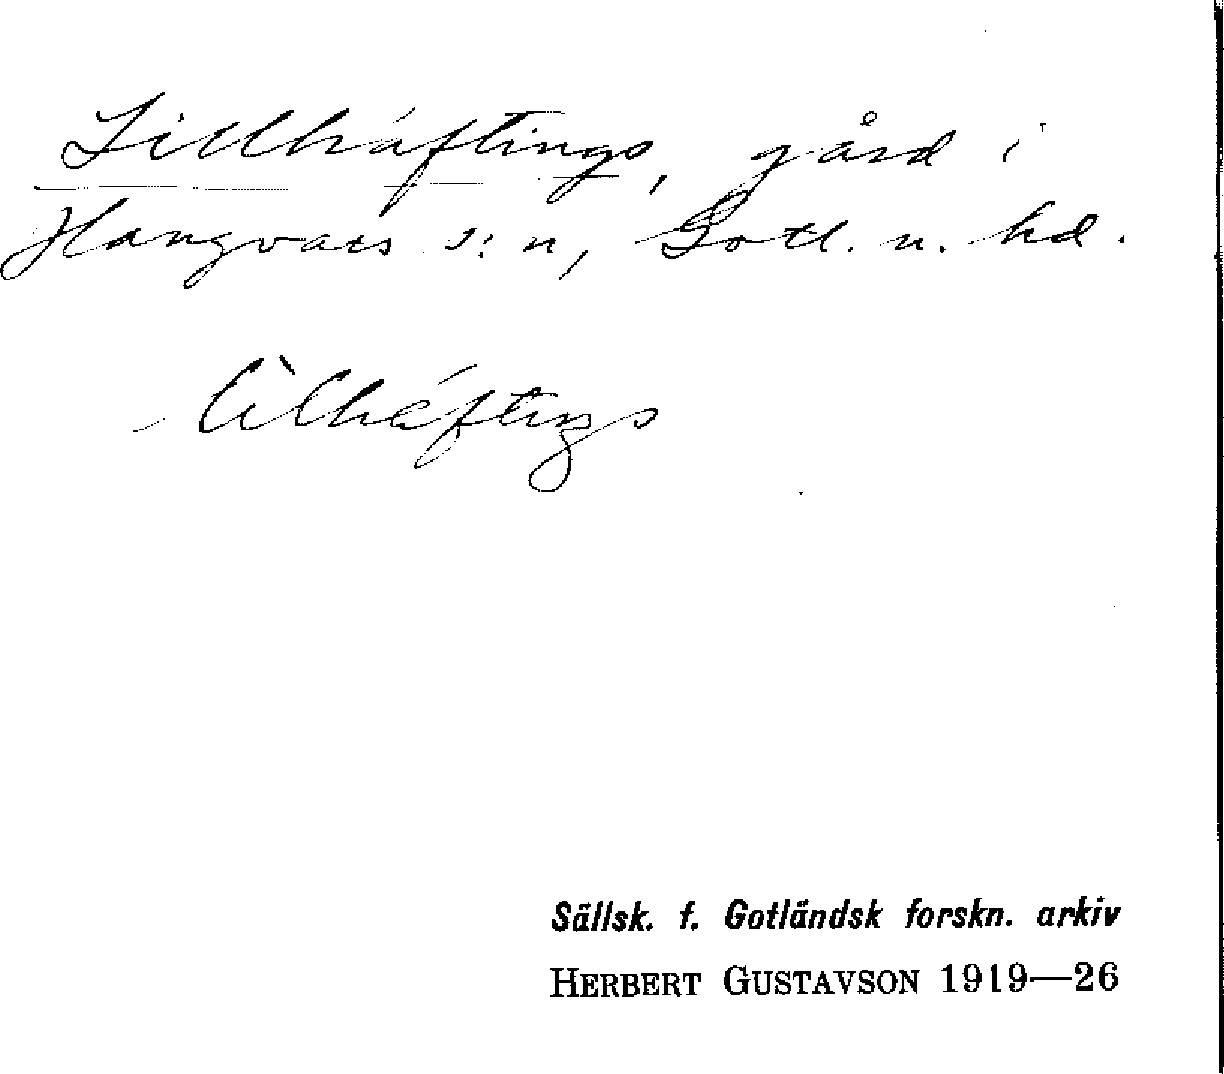 Lillhäftings, gård i
Hangvars s:n, Gotl. n. hd.
lìlhä́ftiŋs
Sällsk. f. Gotländsk forskn. arkiv
HERBERT GUSTAVSON 1919—26